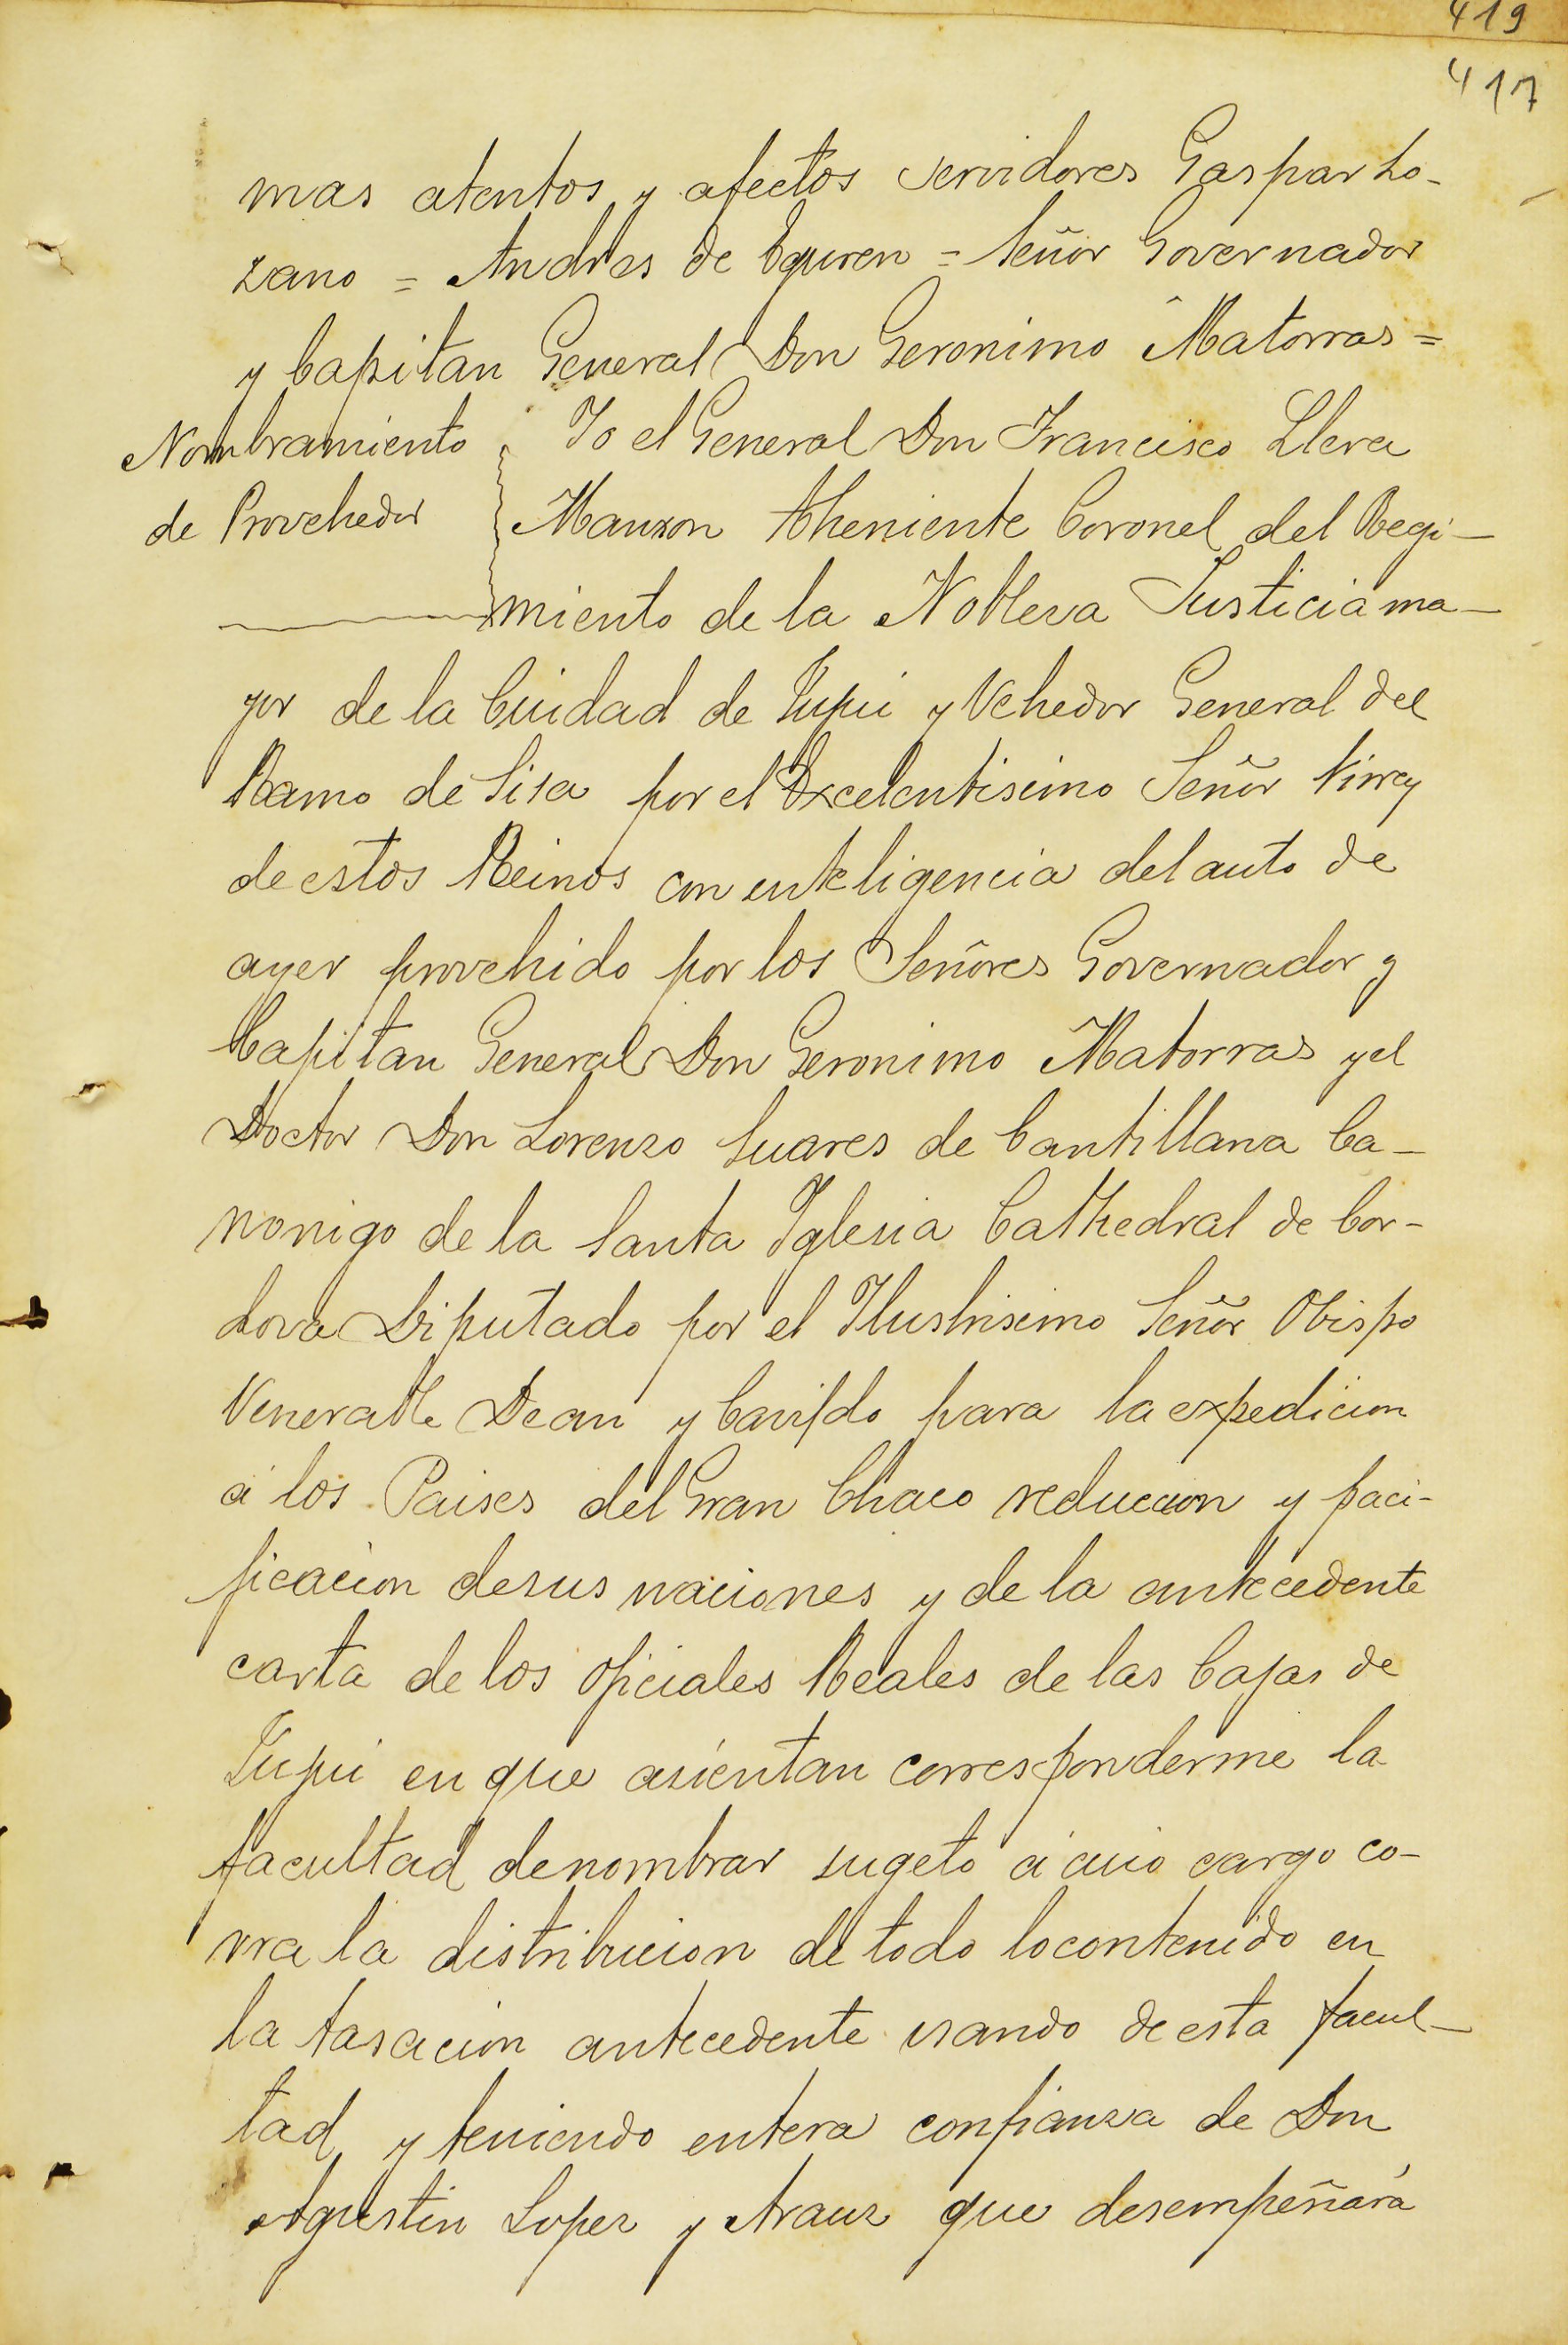 419
417
mas atentos y afectos servidores Gaspar Lo-
zano = Andres de Eguren = Señor Governador
y Capitan General Don Geronimo Matorras =
Nombramiento
de Provehedor
Yo el General Don Francisco Llera
Manzon Theniente Coronel del Regi-
miento de la Nobleza Justicia ma-
yor de la Ciudad de Jujui y Vehedor General del
Ramo de Sisa por el Excelentisimo Señor Virrey
de estos Reinos con inteligencia del auto de
ayer provehido por los Señores Governador y
Capitan General Don Geronimo Matorras y el
Doctor Don Lorenzo Suares de Cantillana Ca-
nonigo de la Santa Yglesia Cathedral de Cor-
dova Diputado por el Ilustrisimo Señor Obispo
Venerable Dean y Cavildo para la expedicion
á los Paises del Gran Chaco reduccion y paci-
ficacion de sus naciones y de la antecedente
carta de los Oficiales Reales de las Cajas de
Jujui en que asientan corresponderme la
facultad de nombrar sugeto á cuio cargo co-
rra la distribucion de todo lo contenido en
la tasacion antecedente usando de esta facul-
tad y teniendo entera confianza de Don
Agustin Lopez y Arauz que desempeñará